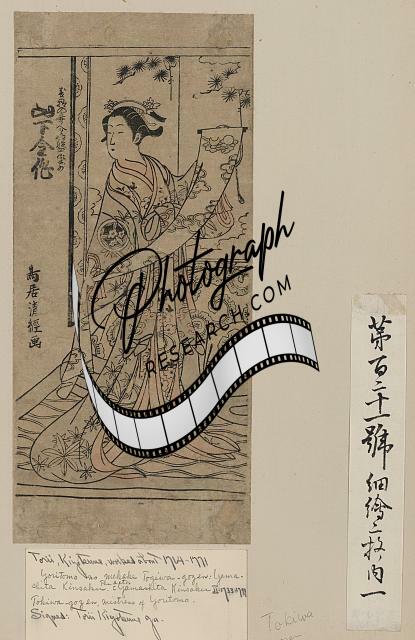 山下金作
鳥居清経画
Photograph
RESEARCH.COM
第百二十一號 細繪二枚内一
Torii Kiyotsune, worked about 1764-1771
Yoritomo no mekake Togiwa-gozen: Yama-
shita Kinsaku.
The actor Yamashita Kinsaku II
Tokiwa-gozen, mistress of Yoritomo.
Signed: Torii Kiyotsune ga.
Tokiwa